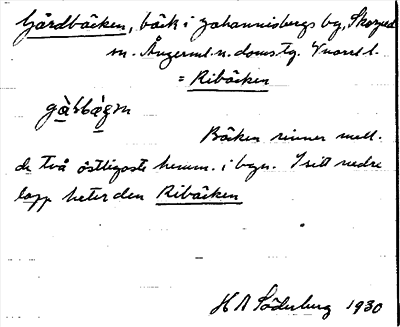 Gårdbäcken, bäck i Johannisbergs by, Skorped
sn. Ångerml. n. doms.
= Ribäcken
Bäcken rinner mell.
de två östligaste hemm. i byn. I sitt nedre
lopp heter den Ribäcken
H A Söderberg 1930